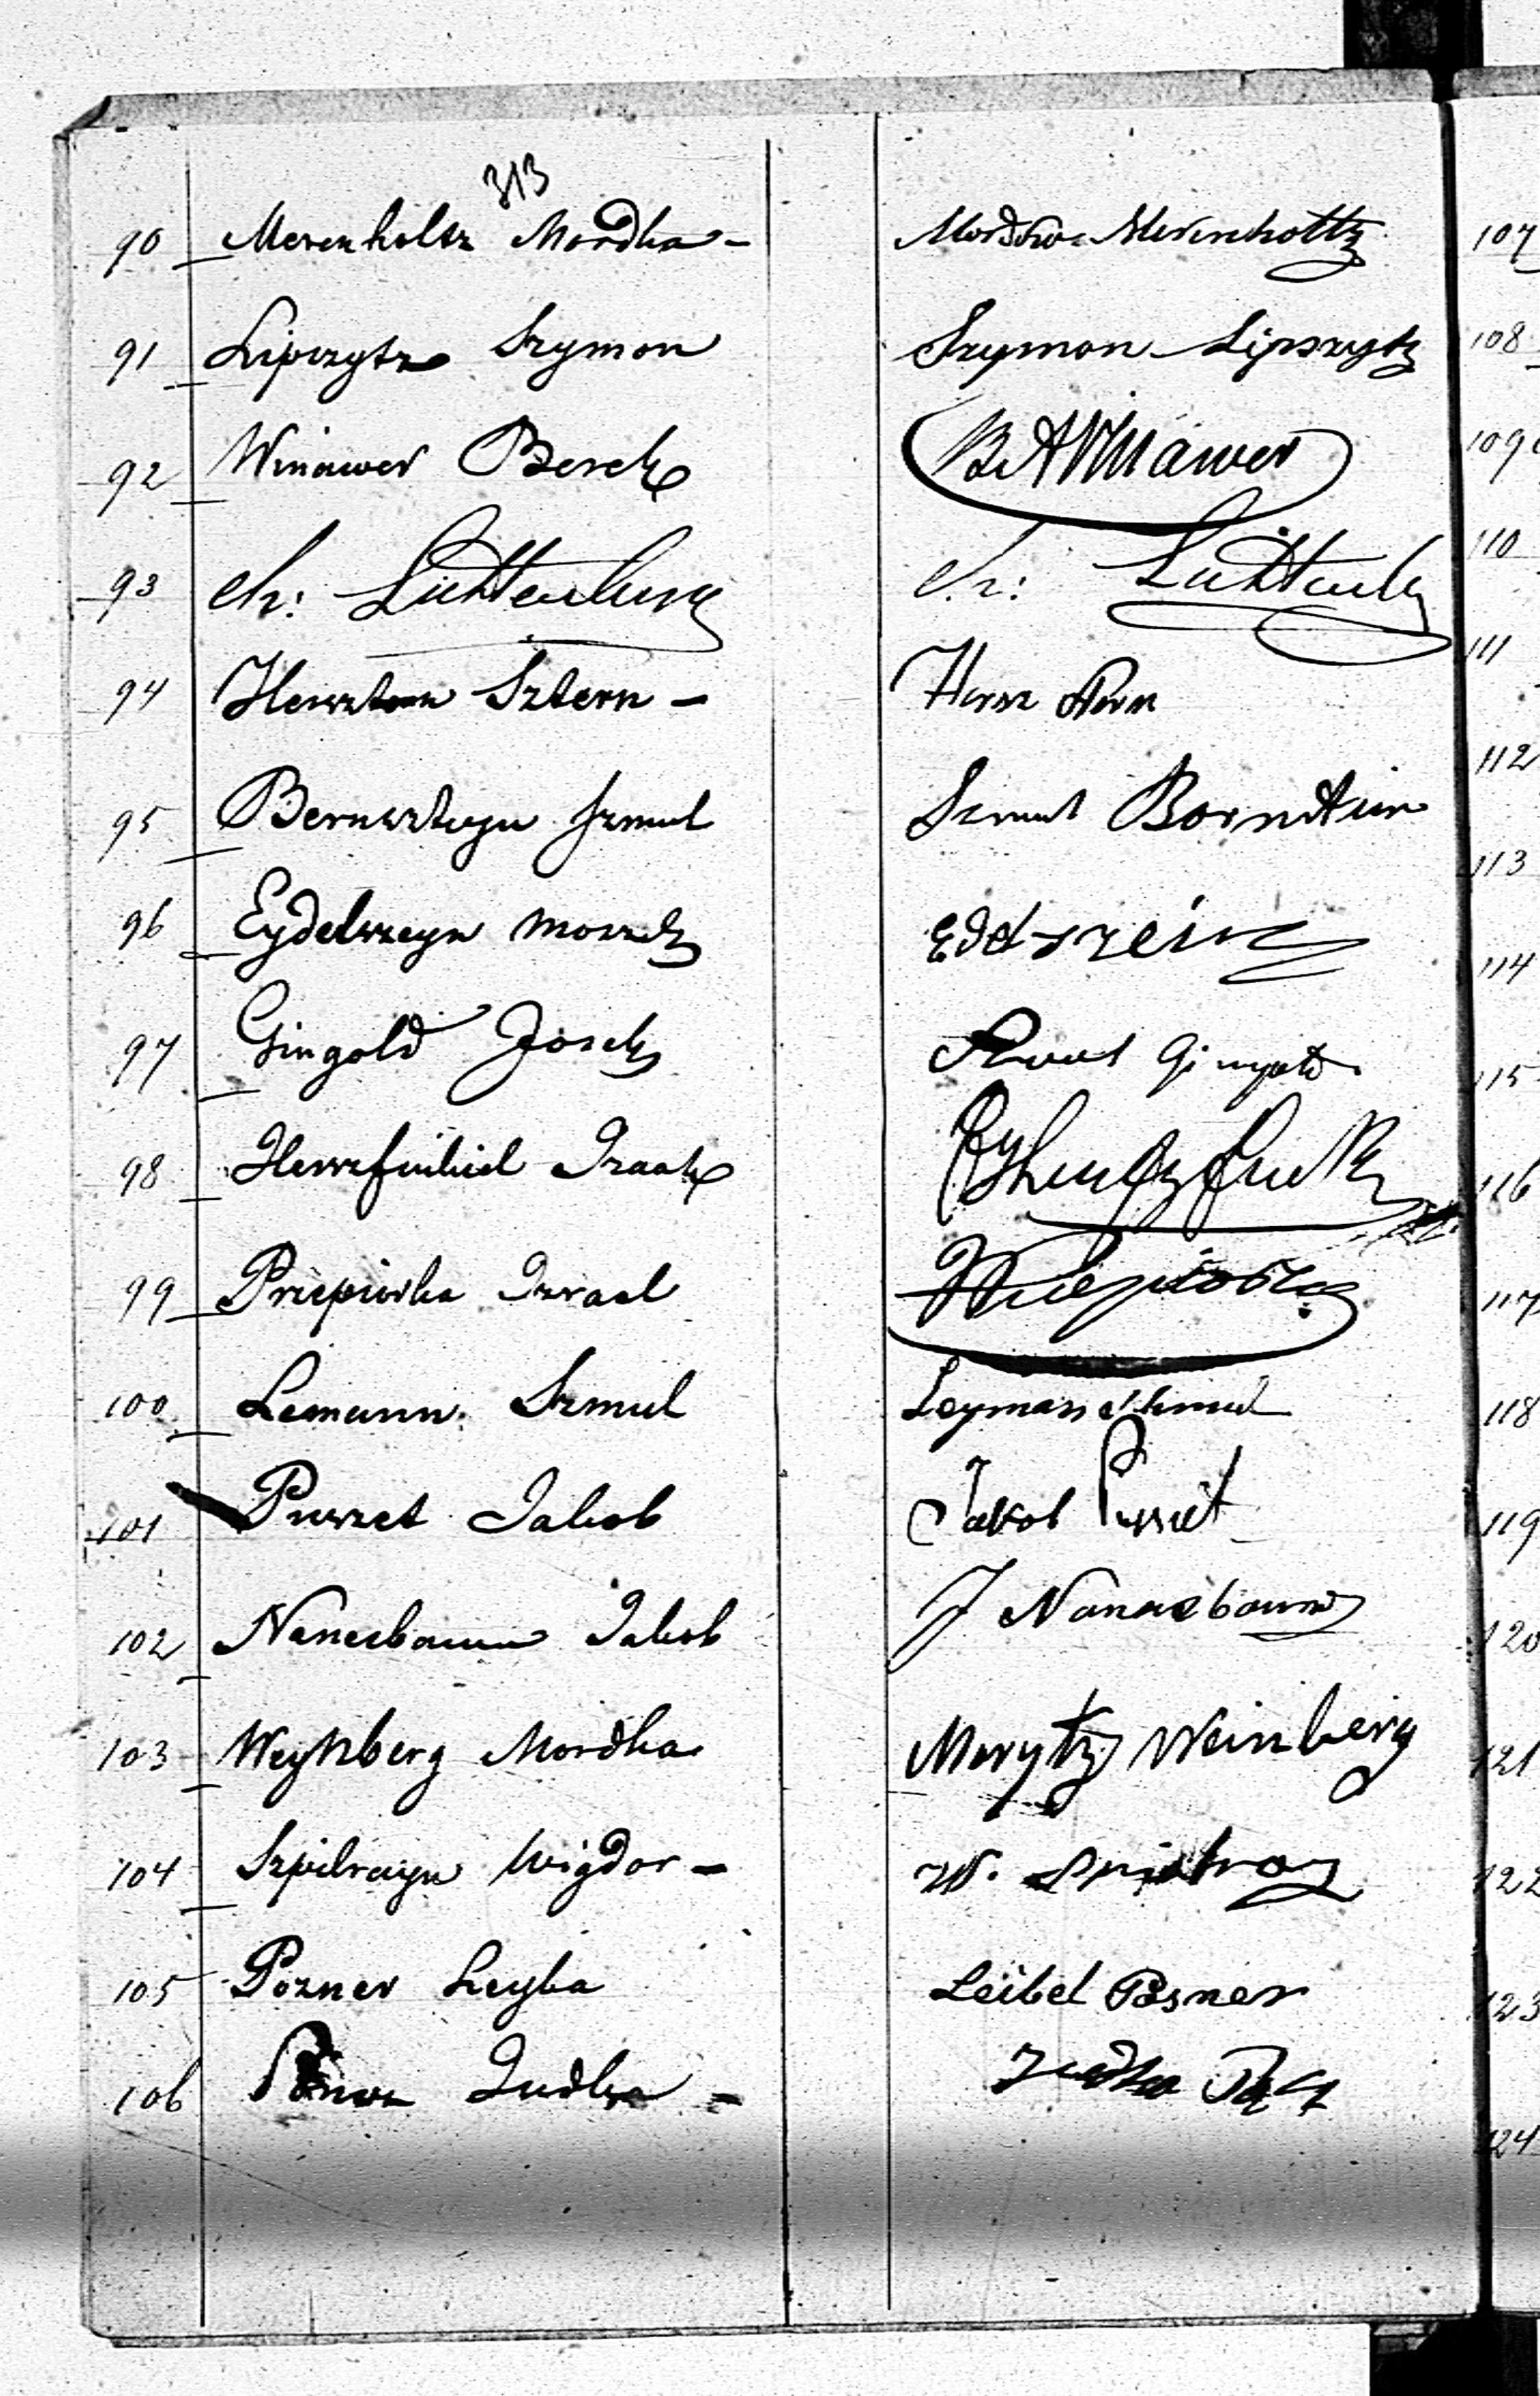 313
90 Merenholtz Mordka - Mordka Merenholtz
91 Lipszytz Szymon Szymon Lipszytz
92 Winawer Berek B A Winawer
93 Ch: Lichtenberg Ch: Lichtenb
94 Herszton Sztern - Hersz Stern
95 Bernszteyn Szmul Szmul Bornstein
96 Eydelszeyn Moszek Edelszein
97 Gingold Josek Gingold
98 Herszfinkiel Izaak
99 Przepiurka Izrael Przepiórka
100 Lemann Szmul Leymann Szmul
101 Purzet Jakob Jakob Purset
102 Nanesbaum Jakob J Nanasbaum
103 Weynberg Mordka Morytz Weinberg
104 Szpilrayn Wigdor - W.
105 Pozner Leyba Leibel Posner
106 Judka - Judka
107
108
109
110
111
112
113
114
115
116
117
118
119
120
121
122
123
124